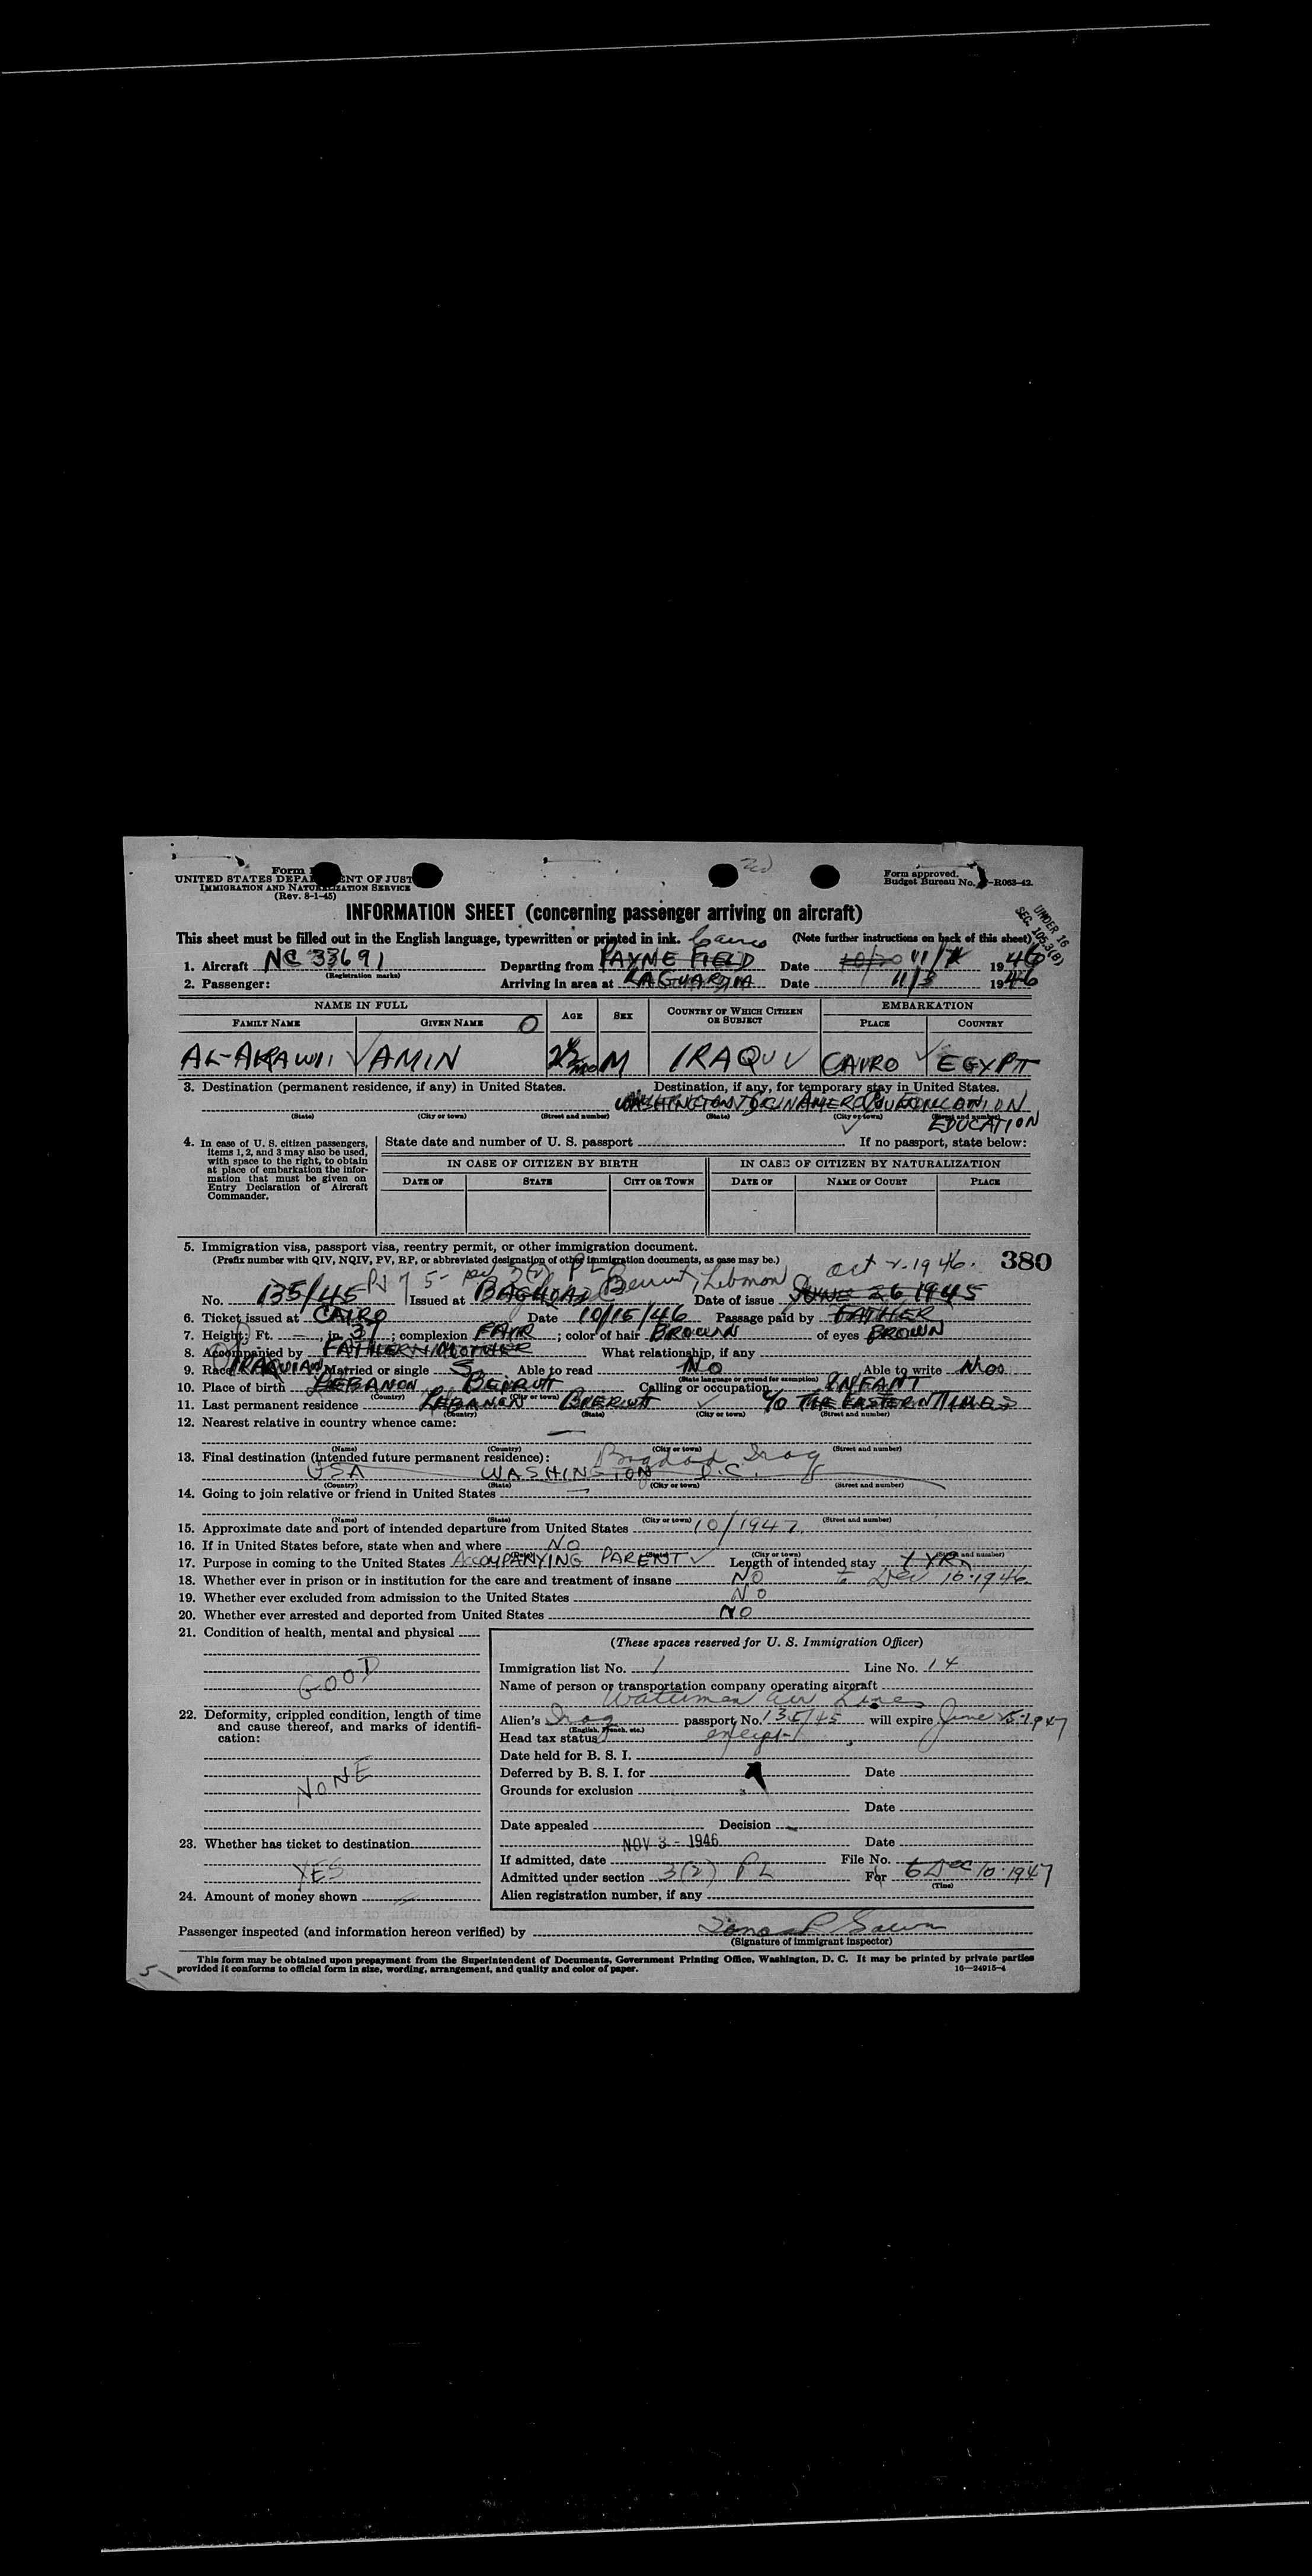 UNITED STATES DEPA ENT OF JUST
IMMIGRATION AND NATURALIZATION SERVICE
(Rev. 8-1-45)
Form approved.
Budget Bureau No. -R063-42.
INFORMATION SHEET (concerning passenger arriving on aircraft)
UNDER 16
SEC. 105.3(B)
This sheet must be filled out in the English language, typewritten or printed in ink. (Note further instructions on back of this sheet)
Cairo
1. Aircraft NC 33691 Departing from PAYNE FIELD Date 10/30 11/ 1946
(Registration marks)
2. Passenger: Arriving in area at LAGUARDIA Date 11/3 1946
NAME IN FULL AGE SEX COUNTRY OF WHICH CITIZEN OR SUBJECT EMBARKATION
FAMILY NAME GIVEN NAME PLACE COUNTRY
AMIN M IRAQUI CAIRO EGYPT
3. Destination (permanent residence, if any) in United States. Destination, if any, for temporary stay in United States.
(State) (City or town) (Street and number) (State) (City or town) (Street and number)
EDUCATION
4. In case of U. S. citizen passengers, items 1, 2, and 3 may also be used, with space to the right, to obtain at place of embarkation the information that must be given on Entry Declaration of Aircraft Commander.
State date and number of U. S. passport If no passport, state below:
IN CASE OF CITIZEN BY BIRTH IN CASE OF CITIZEN BY NATURALIZATION
DATE OF STATE CITY OR TOWN DATE OF NAME OF COURT PLACE
5. Immigration visa, passport visa, reentry permit, or other immigration document.
(Prefix number with QIV, NQIV, PV, RP, or abbreviated designation of other immigration documents, as case may be.)
380
PV 75 3(2) Beirut, Lebanon Oct 2. 1946.
No. 135/45 Issued at BAGHDAD Date of issue JUNE 26 1945
6. Ticket issued at CAIRO Date 10/15/46 Passage paid by FATHER
7. Height: Ft. —, in. 37; complexion FAIR; color of hair BROWN of eyes BROWN
8. Accompanied by FATHER MOTHER What relationship, if any
9. Race IRAQUIAN Married or single S Able to read NO Able to write NO
(State language or ground for exemption)
10. Place of birth LEBANON BEIRUT Calling or occupation INFANT
(Country) (City or town)
11. Last permanent residence LEBANON BIERUT C/O THE EASTERN TIMES
(Country) (State) (City or town) (Street and number)
12. Nearest relative in country whence came:
—
(Name) (Country) (City or town) (Street and number)
13. Final destination (intended future permanent residence): Bagdad Iraq
USA WASHINGTON D.C.
(Country) (State) (City or town) (Street and number)
14. Going to join relative or friend in United States —
(Name) (State) (City or town) (Street and number)
15. Approximate date and port of intended departure from United States 10/1947
16. If in United States before, state when and where NO
(City or town) (Street and number)
17. Purpose in coming to the United States ACCOMPANYING PARENT Length of intended stay 1 YR
18. Whether ever in prison or in institution for the care and treatment of insane NO to Dec 10. 1946
19. Whether ever excluded from admission to the United States NO
20. Whether ever arrested and deported from United States NO
21. Condition of health, mental and physical
GOOD
22. Deformity, crippled condition, length of time and cause thereof, and marks of identification:
NONE
23. Whether has ticket to destination
YES
24. Amount of money shown —
(These spaces reserved for U. S. Immigration Officer)
Immigration list No. 1 Line No. 14
Name of person or transportation company operating aircraft
Waterman Air Lines
Alien's Iraq passport No. 135/45 will expire June 1947
(English, French, etc.)
Head tax status exempt
Date held for B. S. I.
Deferred by B. S. I. for Date
Grounds for exclusion
Date
Date appealed Decision
NOV 3 - 1946 Date
If admitted, date File No.
Admitted under section 3(2) PL For to Dec 10. 1947
(Time)
Alien registration number, if any
Passenger inspected (and information hereon verified) by
(Signature of immigrant inspector)
This form may be obtained upon prepayment from the Superintendent of Documents, Government Printing Office, Washington, D. C. It may be printed by private parties
provided it conforms to official form in size, wording, arrangement, and quality and color of paper.
16—24915-4
5